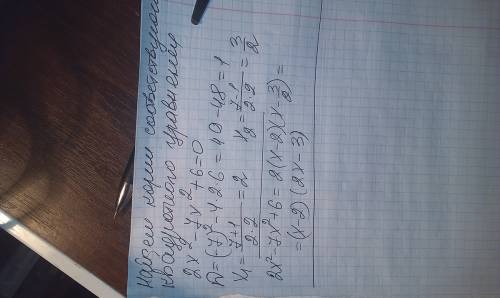 Найдем корни соответствующего
квадратного уравнения
2x²-7x²+6=0
D=(-7)²-4·2·6=49-48=1
x₁=(7+1)/(2·2)=2 x₂=(7-1)/(2·2)=3/2
2x²-7x²+6=2(x-2)(x-3/2)=
=(x-2)(2x-3)